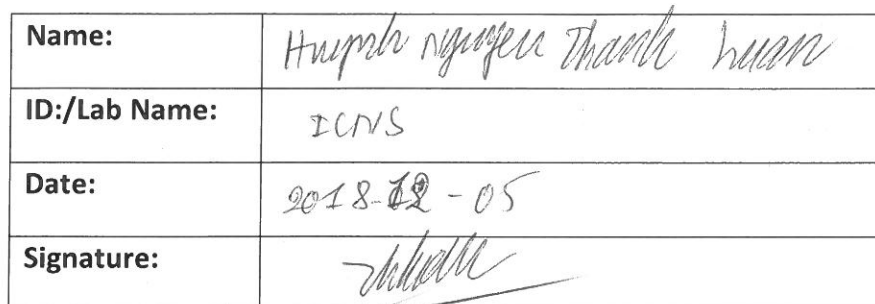 Name: Huynh Nguyen Thanh Luan
ID:/Lab Name: ICNS
Date: 2018-12-05
Signature: